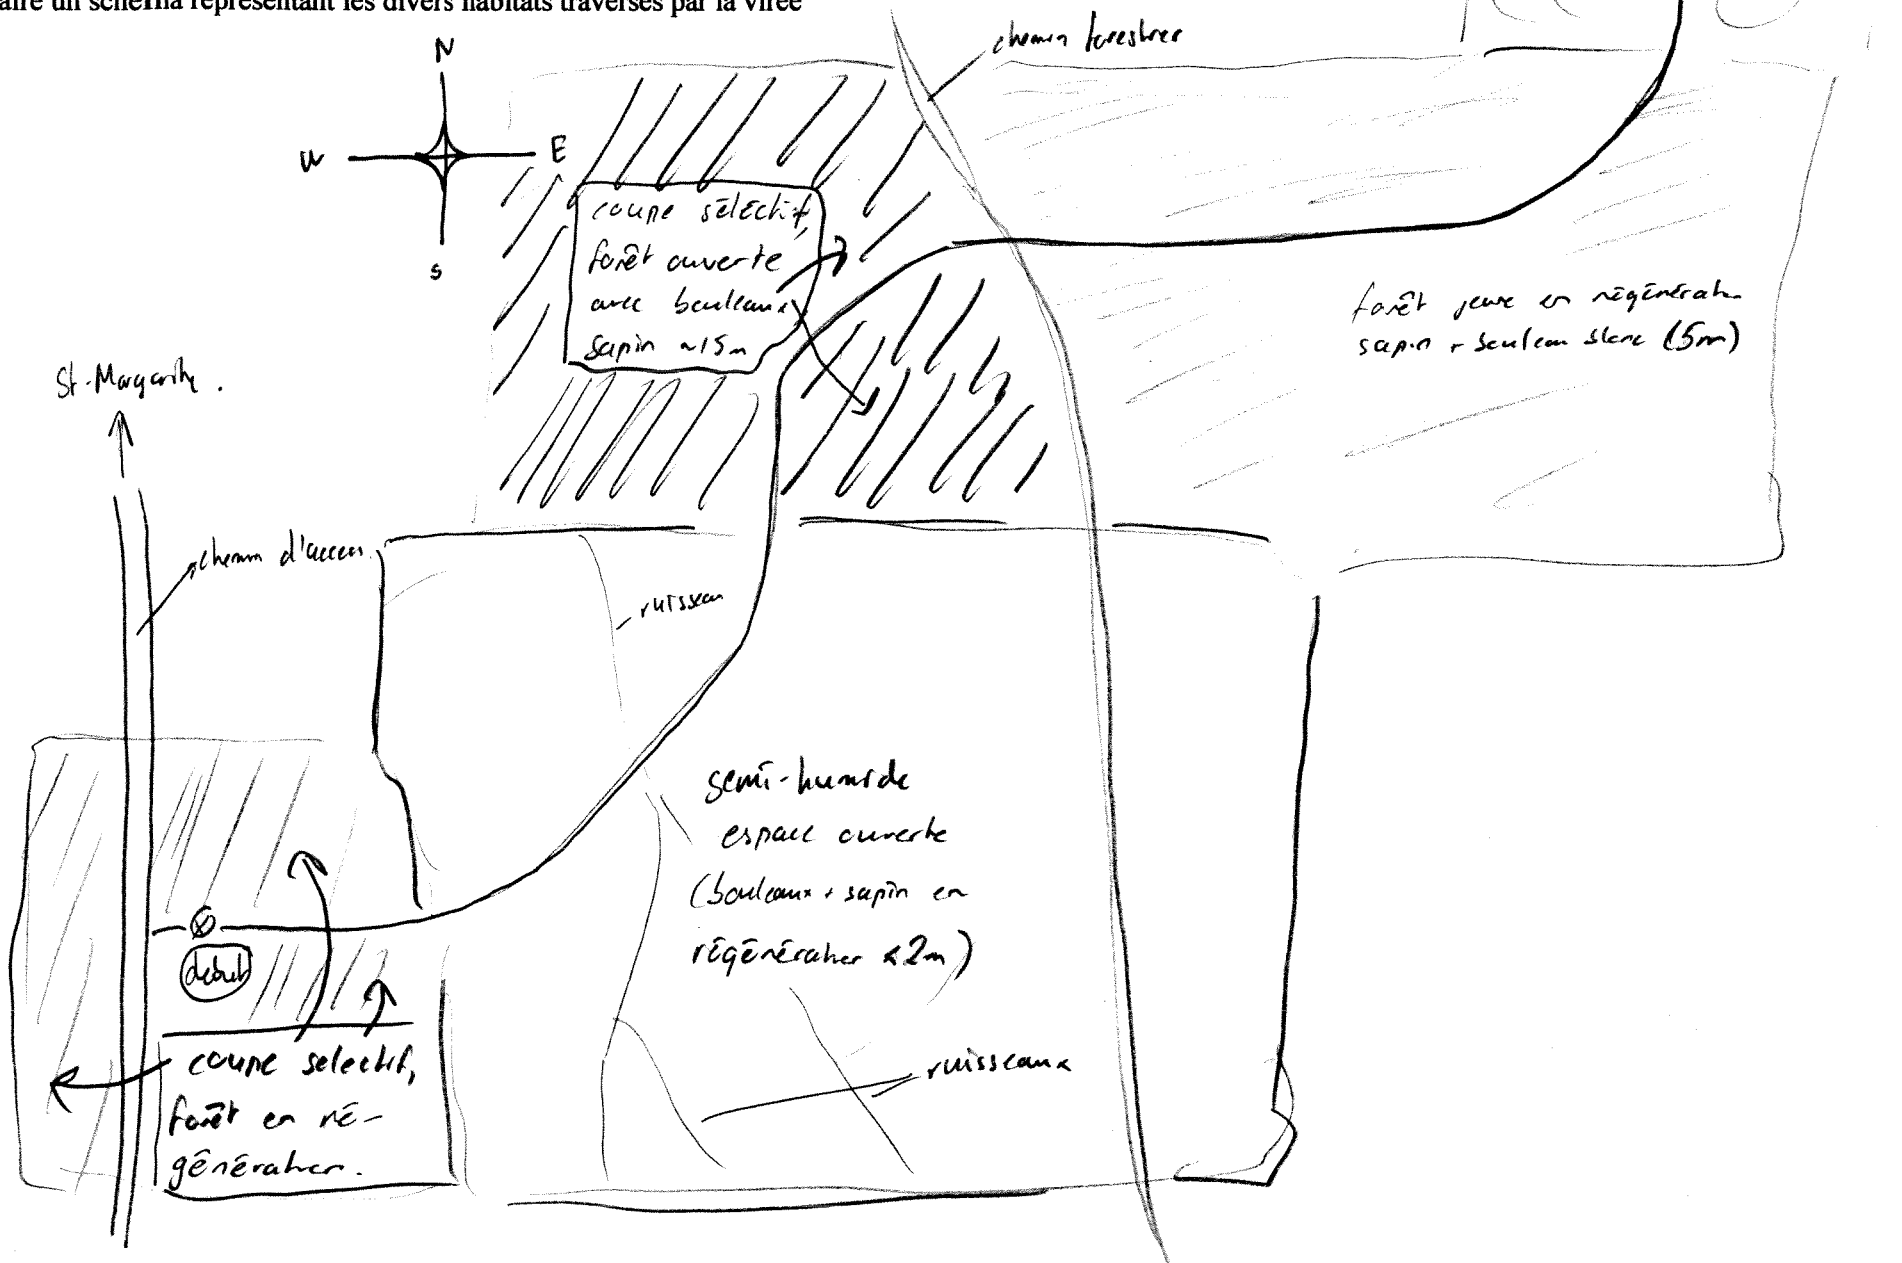 aire un schema représentant les divers habitats traversés par la virée
N
chemin forestier
W
E
S
coupe sélectif,
forêt ouverte
avec bouleaux
sapin ~15m
forêt jeune en régénérat
sapin + bouleau blanc (5m)
St-Margarite.
chemin d'acces
ruisseau
semi-humide
espace ouverte
(bouleaux + sapin en
régénération <2m)
début
ruisseaux
coupe selectif,
forêt en ré-
génération.